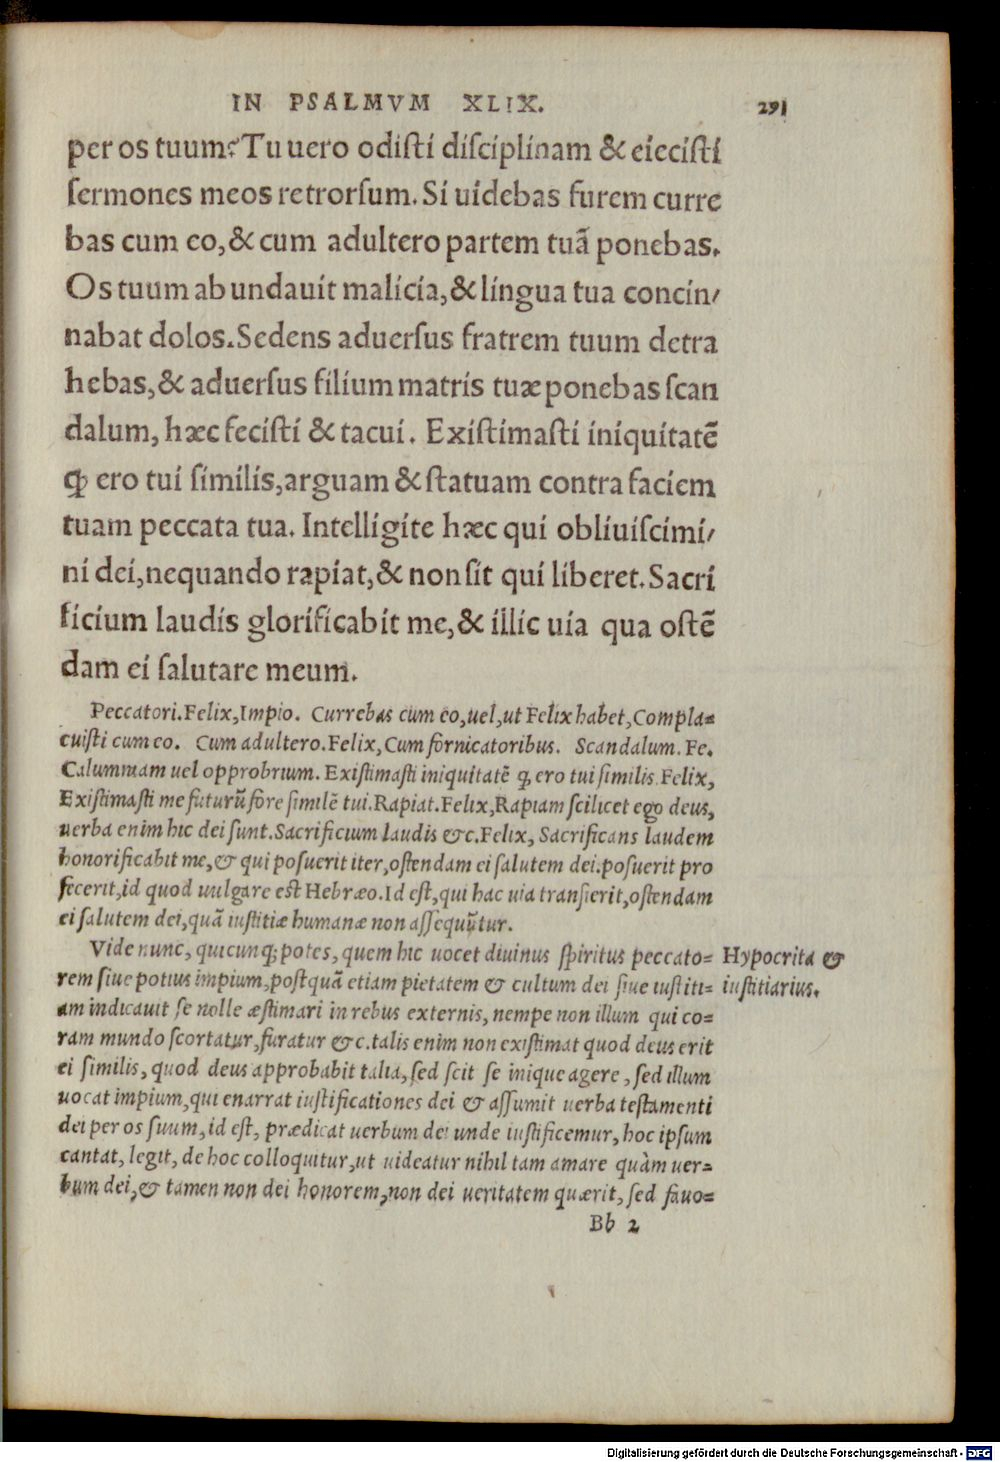 IN PSALMVM XLIX. 291
per os tuum? Tu uero odisti disciplinam & eiecisti
sermones meos retrorsum. Si uidebas furem curre
bas cum eo, & cum adultero partem tuã ponebas.
Os tuum abundauit malicia, & lingua tua concin/
nabat dolos. Sedens aduersus fratrem tuum detra
hebas, & aduersus filium matris tuæ ponebas scan
dalum, hæc fecisti & tacui. Existimasti iniquitatẽ
ꝙ ero tui similis, arguam & statuam contra faciem
tuam peccata tua. Intelligite hæc qui obliuiscimi/
ni dei, nequando rapiat, & non sit qui liberet. Sacri
ficium laudis glorificabit me, & illic uia qua ostẽ
dam ei salutare meum.
Peccatori. Felix, Impio. Currebas cum eo, uel, ut Felix habet, Compla=
cuisti cum eo. Cum adultero. Felix, Cum fornicatoribus. Scandalum. Fe.
Calumniam uel opprobrium. Existimasti iniquitatẽ ꝙ ero tui similis. Felix,
Existimasti me futurũ fore similẽ tui. Rapiat. Felix, Rapiam scilicet ego deus,
uerba enim hic dei sunt. Sacrificium laudis &c. Felix, Sacrificans laudem
honorificabit me, & qui posuerit iter, ostendam ei salutem dei. posuerit pro
fecerit, id quod uulgare est Hebræo. Id est, qui hac uia transierit, ostendam
ei salutem dei, quã iustitiæ humanæ non assequũtur.
Vide nunc, quicunq; potes, quem hic uocet diuinus spiritus peccato=
rem siue potius impium, postquã etiam pietatem & cultum dei siue iustiti=
am indicauit se nolle æstimari in rebus externis, nempe non illum qui co=
ram mundo scortatur, furatur &c. talis enim non existimat quod deus erit
ei similis, quod deus approbabit talia, sed scit se inique agere, sed illum
uocat impium, qui enarrat iustificationes dei & assumit uerba testamenti
dei per os suum, id est, prædicat uerbum dei unde iustificemur, hoc ipsum
cantat, legit, de hoc colloquitur, ut uideatur nihil tam amare quàm uer=
bum dei, & tamen non dei honorem, non dei ueritatem quærit, sed fauo=
Hypocrita &
iustitiarius.
Bb 2
Digitalisierung gefördert durch die Deutsche Forschungsgemeinschaft - DFG